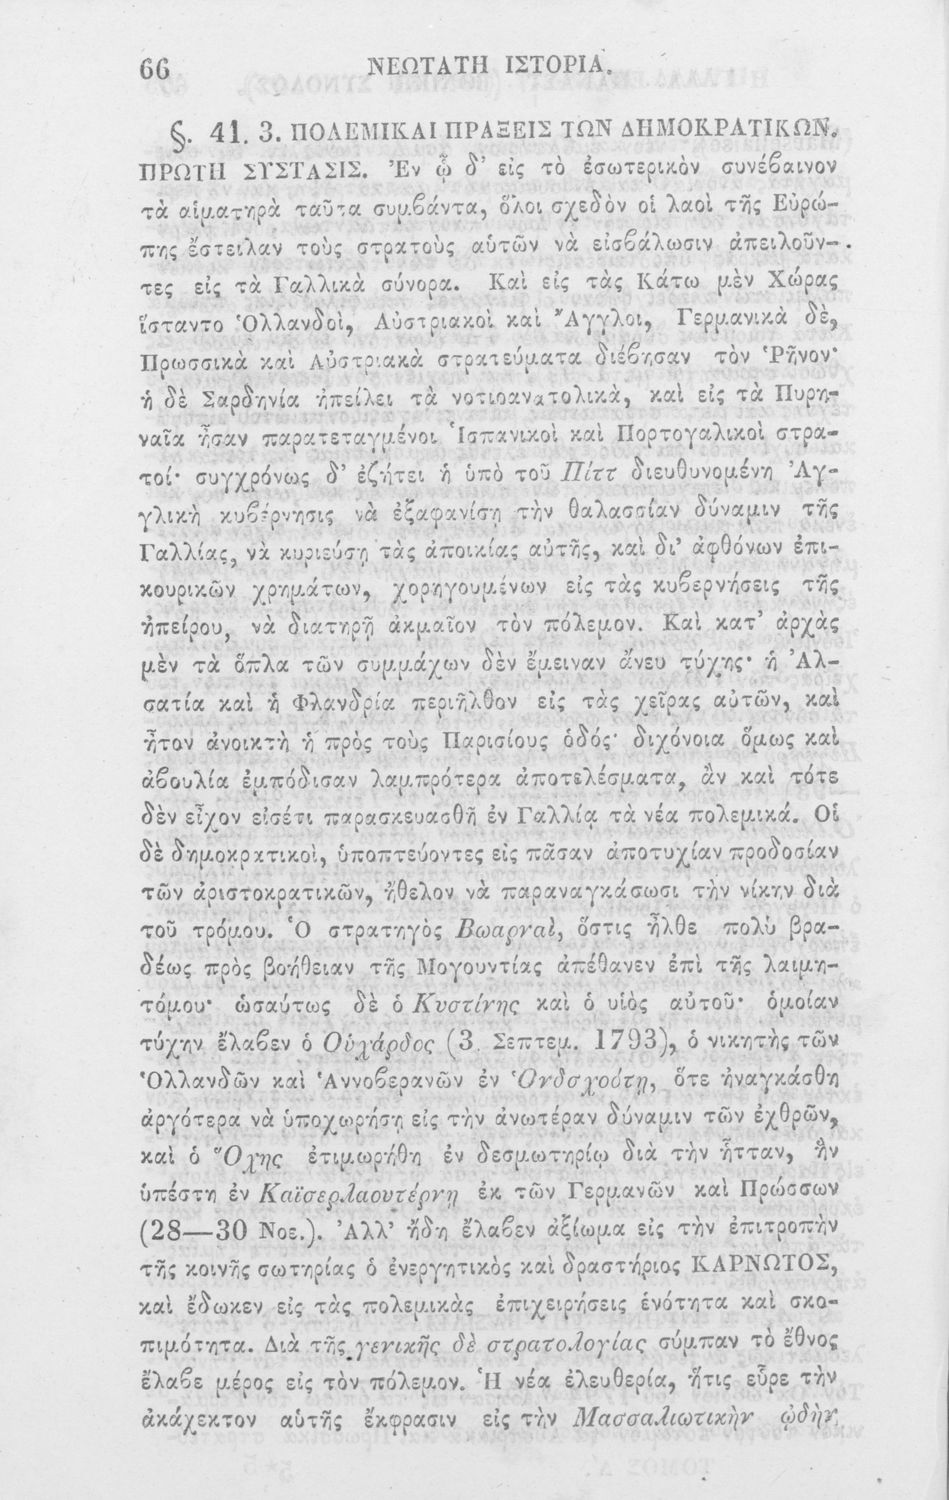 66 ΝΕΩΤΑΤΗ ΙΣΤΟΡΙΑ.
§. 41. 3. ΠΟΛΕΜΙΚΑΙ ΠΡΑΞΕΙΣ ΤΩΝ ΔΗΜΟΚΡΑΤΙΚΩΝ.
ΠΡΩΤΗ ΣΥΣΤΑΣΙΣ. Ἐν ᾧ δ’ εἰς τὸ ἐσωτερικὸν συνέβαινον
τὰ αἱματηρὰ ταῦτα συμβάντα, ὅλοι σχεδὸν οἱ λαοὶ τῆς Εὐρώ-
πης ἔστειλαν τοὺς στρατοὺς αὑτῶν νὰ εἰσβάλωσιν ἀπειλοῦν-
τες εἰς τὰ Γαλλικὰ σύνορα. Καὶ εἰς τὰς Κάτω μὲν Χώρας
ἵσταντο Ὁλλανδοὶ, Αὐστριακοὶ καὶ Ἄγγλοι, Γερμανικὰ δὲ,
Πρωσσικὰ καὶ Αὐστριακὰ στρατεύματα διέβησαν τὸν Ῥῆνον·
ἡ δὲ Σαρδηνία ἠπείλει τὰ νοτιοανατολικὰ, καὶ εἰς τὰ Πυρη-
ναῖα ἦσαν παρατεταγμένοι Ἱσπανικοὶ καὶ Πορτογαλικοὶ στρα-
τοί· συγχρόνως δ’ ἐζήτει ἡ ὑπὸ τοῦ Πίττ διευθυνομένη Ἀγ-
γλικὴ κυβέρνησις νὰ ἐξαφανίσῃ τὴν θαλασσίαν δύναμιν τῆς
Γαλλίας, νὰ κυριεύσῃ τὰς ἀποικίας αὐτῆς, καὶ δι’ ἀφθόνων ἐπι-
κουρικῶν χρημάτων, χορηγουμένων εἰς τὰς κυβερνήσεις τῆς
ἠπείρου, νὰ διατηρῇ ἀκμαῖον τὸν πόλεμον. Καὶ κατ’ ἀρχὰς
μὲν τὰ ὅπλα τῶν συμμάχων δὲν ἔμειναν ἄνευ τύχης· ἡ Ἀλ-
σατία καὶ ἡ Φλανδρία περιῆλθον εἰς τὰς χεῖρας αὐτῶν, καὶ
ἦτον ἀνοικτὴ ἡ πρὸς τοὺς Παρισίους ὁδός· διχόνοια ὅμως καὶ
ἀβουλία ἐμπόδισαν λαμπρότερα ἀποτελέσματα, ἂν καὶ τότε
δὲν εἶχον εἰσέτι παρασκευασθῆ ἐν Γαλλίᾳ τὰ νέα πολεμικά. Οἱ
δὲ δημοκρατικοὶ, ὑποπτεύοντες εἰς πᾶσαν ἀποτυχίαν προδοσίαν
τῶν ἀριστοκρατικῶν, ἤθελον νὰ παραναγκάσωσι τὴν νίκην διὰ
τοῦ τρόμου. Ὁ στρατηγὸς Βωαρναὶ, ὅστις ἦλθε πολὺ βρα-
δέως πρὸς βοήθειαν τῆς Μογουντίας ἀπέθανεν ἐπὶ τῆς λαιμη-
τόμου· ὡσαύτως δὲ ὁ Κυστίνης καὶ ὁ υἱὸς αὐτοῦ· ὁμοίαν
τύχην ἔλαβεν ὁ Οὐχάρδος (3 Σεπτεμ. 1793), ὁ νικητὴς τῶν
Ὁλλανδῶν καὶ Ἀννοβερανῶν ἐν Ὁνδσχούτῃ, ὅτε ἠναγκάσθη
ἀργότερα νὰ ὑποχωρήσῃ εἰς τὴν ἀνωτέραν δύναμιν τῶν ἐχθρῶν,
καὶ ὁ Ὅχης ἐτιμωρήθη ἐν δεσμωτηρίῳ διὰ τὴν ἧτταν, ἣν
ὑπέστη ἐν Καϊσερλαουτέρνῃ ἐκ τῶν Γερμανῶν καὶ Πρώσσων
(28—30 Νοε.). Ἀλλ’ ἤδη ἔλαβεν ἀξίωμα εἰς τὴν ἐπιτροπὴν
τῆς κοινῆς σωτηρίας ὁ ἐνεργητικὸς καὶ δραστήριος ΚΑΡΝΩΤΟΣ,
καὶ ἔδωκεν εἰς τὰς πολεμικὰς ἐπιχειρήσεις ἑνότητα καὶ σκο-
πιμότητα. Διὰ τῆς γενικῆς δὲ στρατολογίας σύμπαν τὸ ἔθνος
ἔλαβε μέρος εἰς τὸν πόλεμον. Ἡ νέα ἐλευθερία, ἥτις εὗρε τὴν
ἀκάχεκτον αὑτῆς ἔκφρασιν εἰς τὴν Μασσαλιωτικὴν ᾠδὴν,